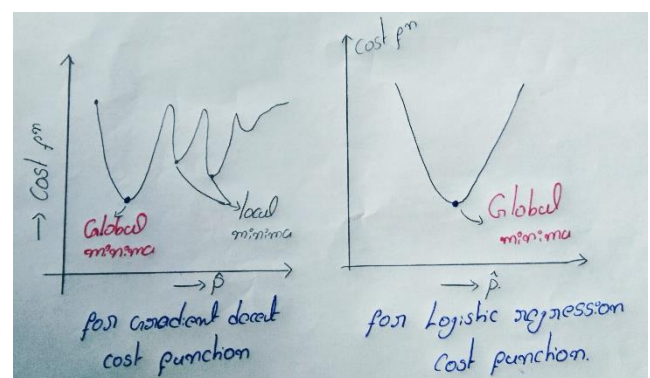 → Cost fn
Global
minima
local
minima
→ p̂
for Gradient decent
cost function
Cost fn
Global
minima
→ p̂.
for Logistic regression
Cost function.